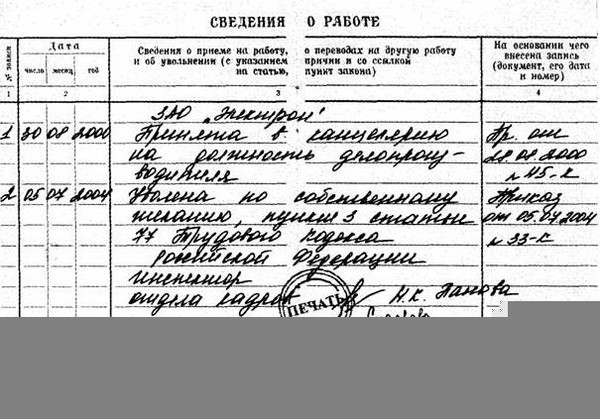 СВЕДЕНИЯ О РАБОТЕ
№ записи
Дата
число
месяц
год
Сведения о приеме на работу, о переводах на другую работу
и об увольнении (с указанием причин и со ссылкой
на статью, пункт закона)
На основании чего
внесена запись
(документ, его дата
и номер)
1 2 3 4
ЗАО „Электрон"
1 30 08 2000 Принята в канцелярию Пр. от
на должность делопроиз- 28.08.2000
водителя № 45-к
2 05 07 2004 Уволена по собственному Приказ
желанию, пункт 3 статьи от 05.07.2004
77 Трудового кодекса № 33-к
Российской Федерации
Инспектор
отдела кадров Н.К. Панова
ПЕЧАТЬ